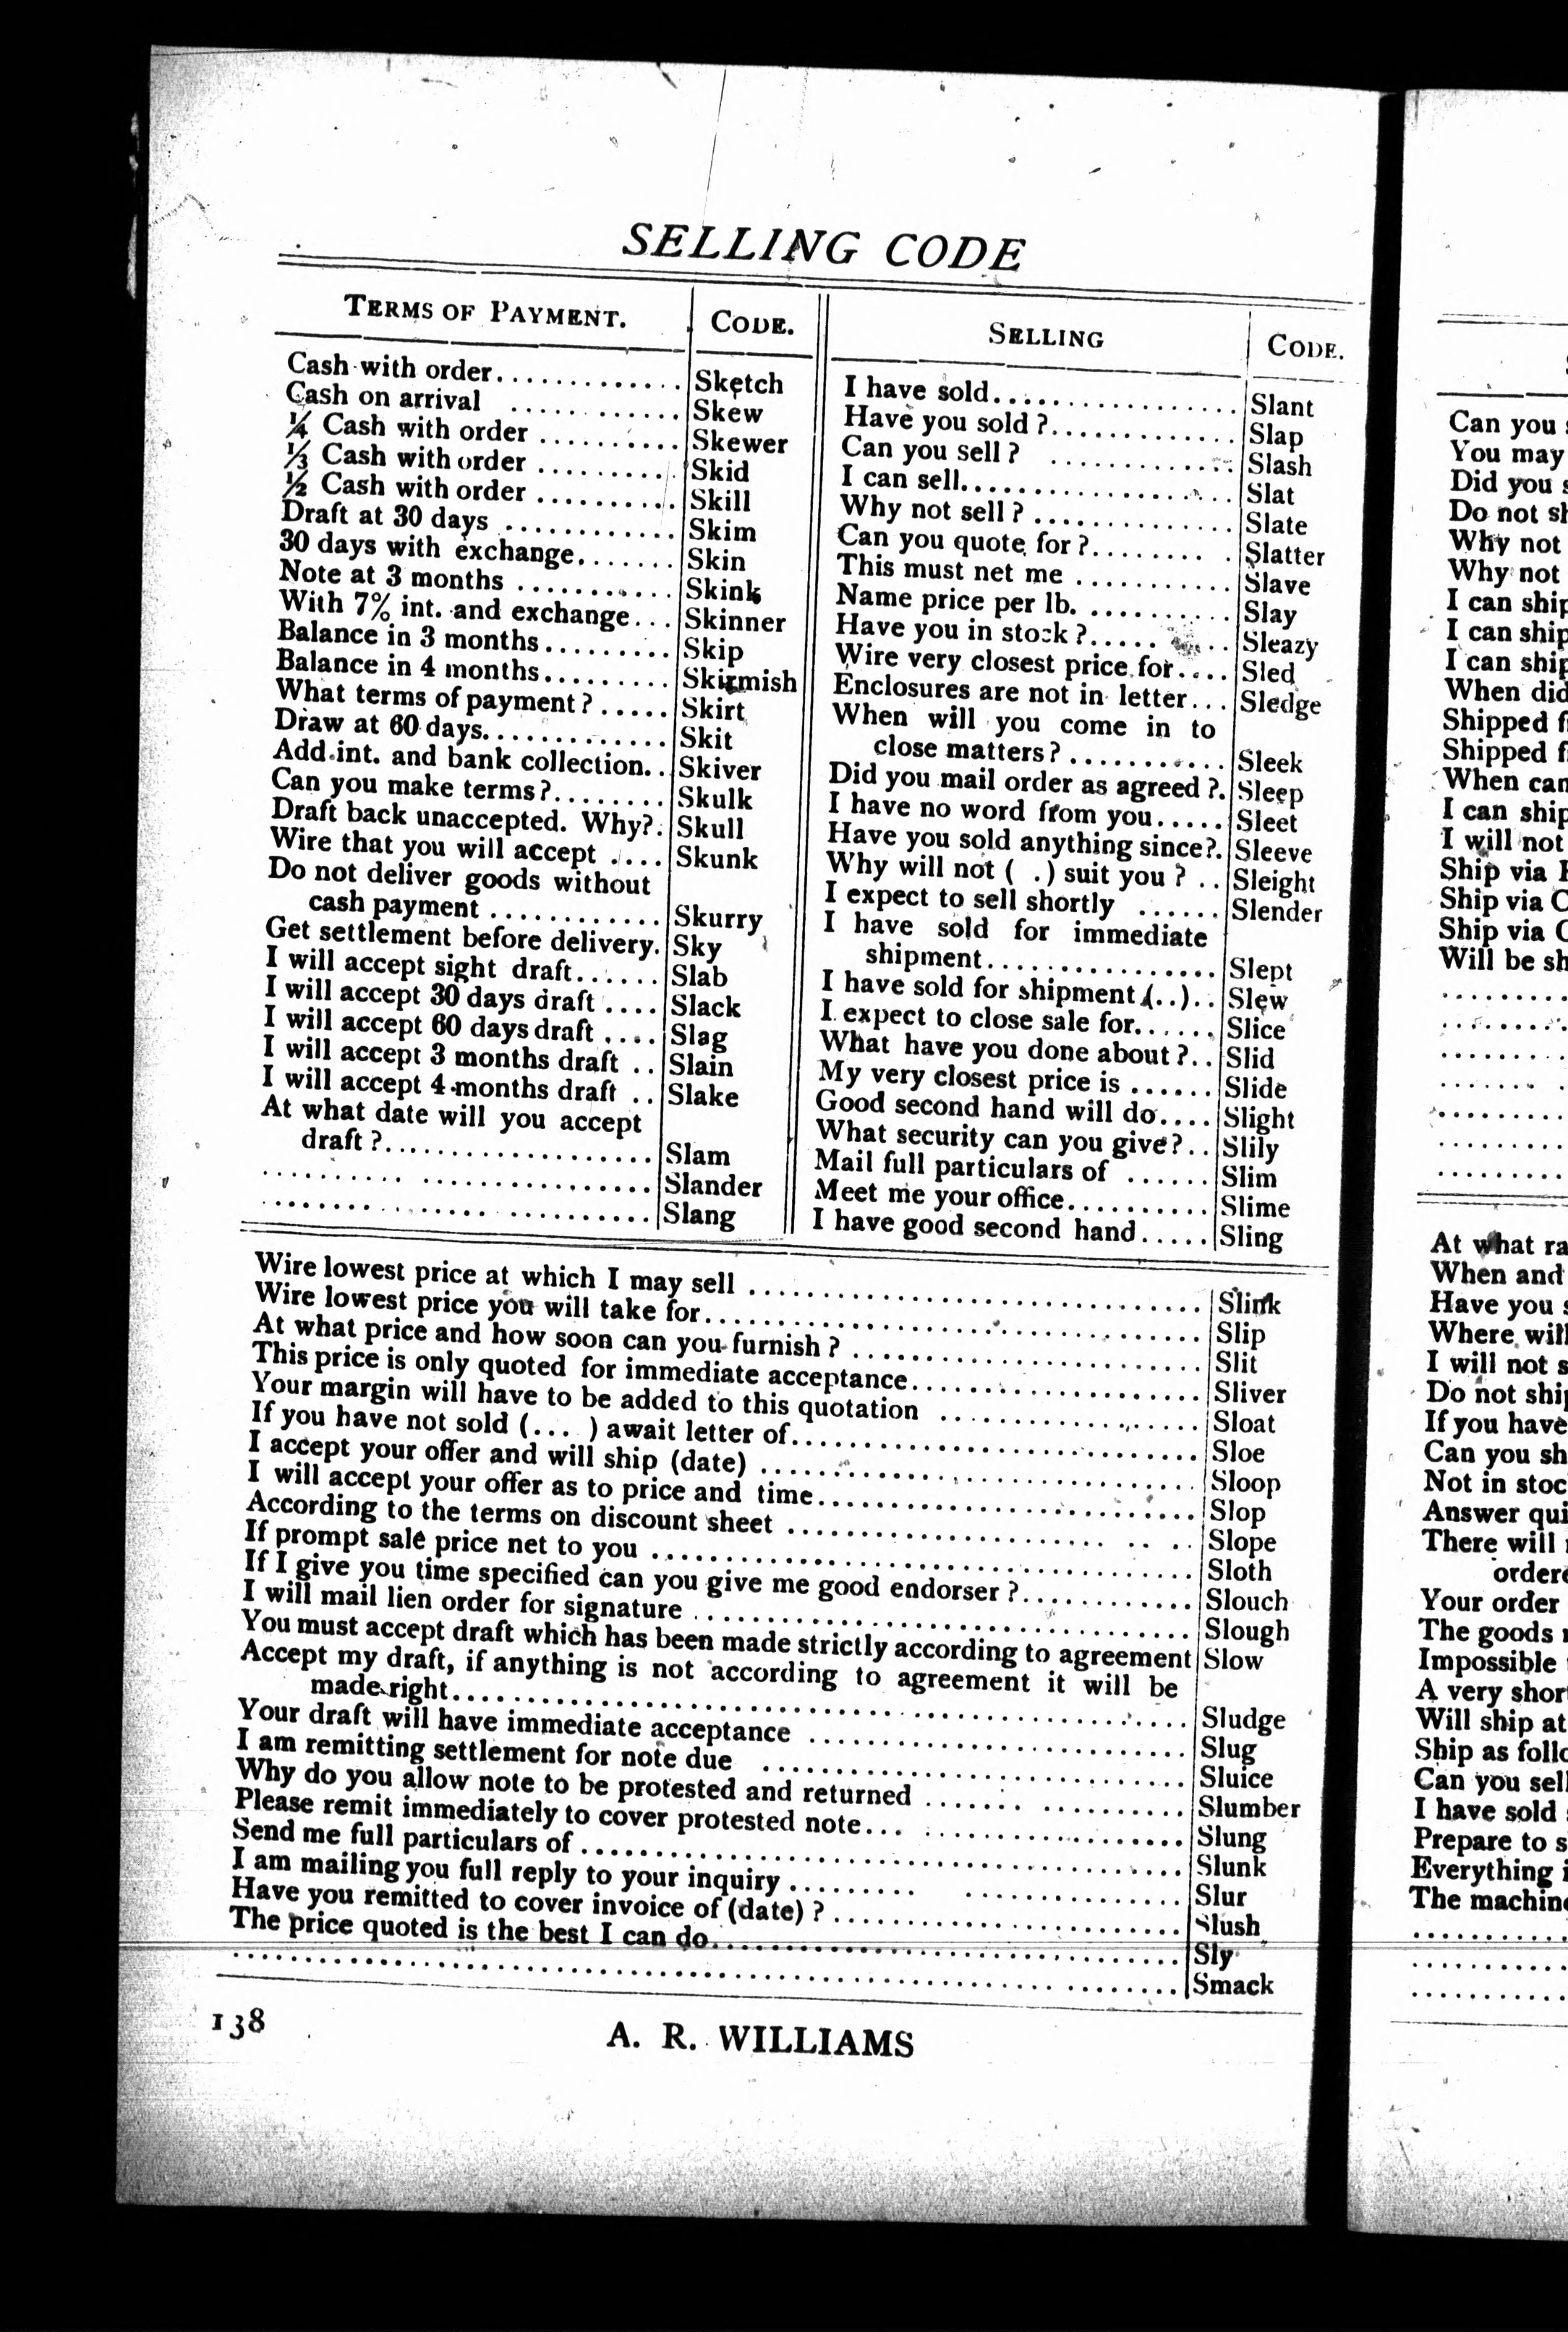 SELLING CODE
TERMS OF PAYMENT. CODE.
Cash with order............. Sketch
Cash on arrival ............ Skew
¼ Cash with order .......... Skewer
⅓ Cash with order .......... Skid
½ Cash with order .......... Skill
Draft at 30 days ............ Skim
30 days with exchange....... Skin
Note at 3 months ........... Skink
With 7% int. and exchange... Skinner
Balance in 3 months......... Skip
Balance in 4 months......... Skirmish
What terms of payment ? ..... Skirt
Draw at 60 days............. Skit
Add int. and bank collection.. Skiver
Can you make terms?........ Skulk
Draft back unaccepted. Why?. Skull
Wire that you will accept .... Skunk
Do not deliver goods without
cash payment ............ Skurry
Get settlement before delivery. Sky
I will accept sight draft...... Slab
I will accept 30 days draft .... Slack
I will accept 60 days draft .... Slag
I will accept 3 months draft .. Slain
I will accept 4 months draft .. Slake
At what date will you accept
draft ?.................... Slam
.......... ............... Slander
............... ........... Slang
SELLING CODE.
I have sold................. Slant
Have you sold ?............. Slap
Can you sell ? ............. Slash
I can sell................... Slat
Why not sell ? .............. Slate
Can you quote for ?........ . Slatter
This must net me ........... Slave
Name price per lb. .......... Slay
Have you in stock ?..... .. Sleazy
Wire very closest price for.... Sled
Enclosures are not in letter... Sledge
When will you come in to
close matters ? ........... Sleek
Did you mail order as agreed ?. Sleep
I have no word from you..... Sleet
Have you sold anything since?. Sleeve
Why will not ( .) suit you ? .. Sleight
I expect to sell shortly ...... Slender
I have sold for immediate
shipment................ Slept
I have sold for shipment (..).. Slew
I expect to close sale for...... Slice
What have you done about ?.. Slid
My very closest price is ...... Slide
Good second hand will do.... Slight
What security can you give?.. Slily
Mail full particulars of ...... Slim
Meet me your office.......... Slime
I have good second hand..... Sling
Wire lowest price at which I may sell .............................. Slink
Wire lowest price you will take for................................. Slip
At what price and how soon can you furnish ? ....................... Slit
This price is only quoted for immediate acceptance................... Sliver
Your margin will have to be added to this quotation ................. Sloat
If you have not sold (... ) await letter of........................... Sloe
I accept your offer and will ship (date) ............................. Sloop
I will accept your offer as to price and time......................... Slop
According to the terms on discount sheet ..................... .. .. Slope
If prompt sale price net to you .................................... Sloth
If I give you time specified can you give me good endorser ?............ Slouch
I will mail lien order for signature ................................. Slough
You must accept draft which has been made strictly according to agreement Slow
Accept my draft, if anything is not according to agreement it will be
made right.................................................. Sludge
Your draft will have immediate acceptance ......................... Slug
I am remitting settlement for note due ............................ Sluice
Why do you allow note to be protested and returned ...... .......... Slumber
Please remit immediately to cover protested note... ................. Slung
Send me full particulars of ........................................ Slunk
I am mailing you full reply to your inquiry ......... ............... Slur
Have you remitted to cover invoice of (date) ? ....................... Slush
The price quoted is the best I can do............................... Sly
.............................................................. Smack
138
A. R. WILLIAMS
Can you
You may
Did you
Do not
Why not
Why not
I can ship
I can ship
I can ship
When did
Shipped
Shipped
When can
I can ship
I will not
Ship via
Ship via
Ship via
Will be
At what
When and
Have you
Where will
I will not
Do not ship
If you have
Can you
Not in
Answer
There will
Your order
The goods
Impossible
A very
Will ship at
Ship as
Can you sell
I have sold
Prepare to
Everything
The